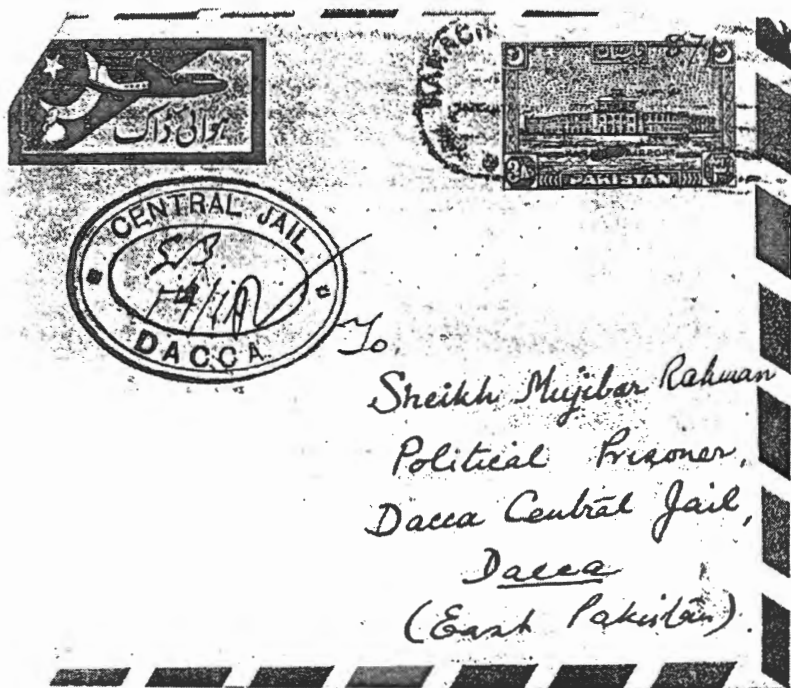 ہوائی ڈاک
KARACHI
87
پاکستان
3As
PAKISTAN
CENTRAL JAIL
DACCA
To
Sheikh Mujibar Rahman
Political Prisoner,
Dacca Central Jail,
Dacca
(East Pakistan).